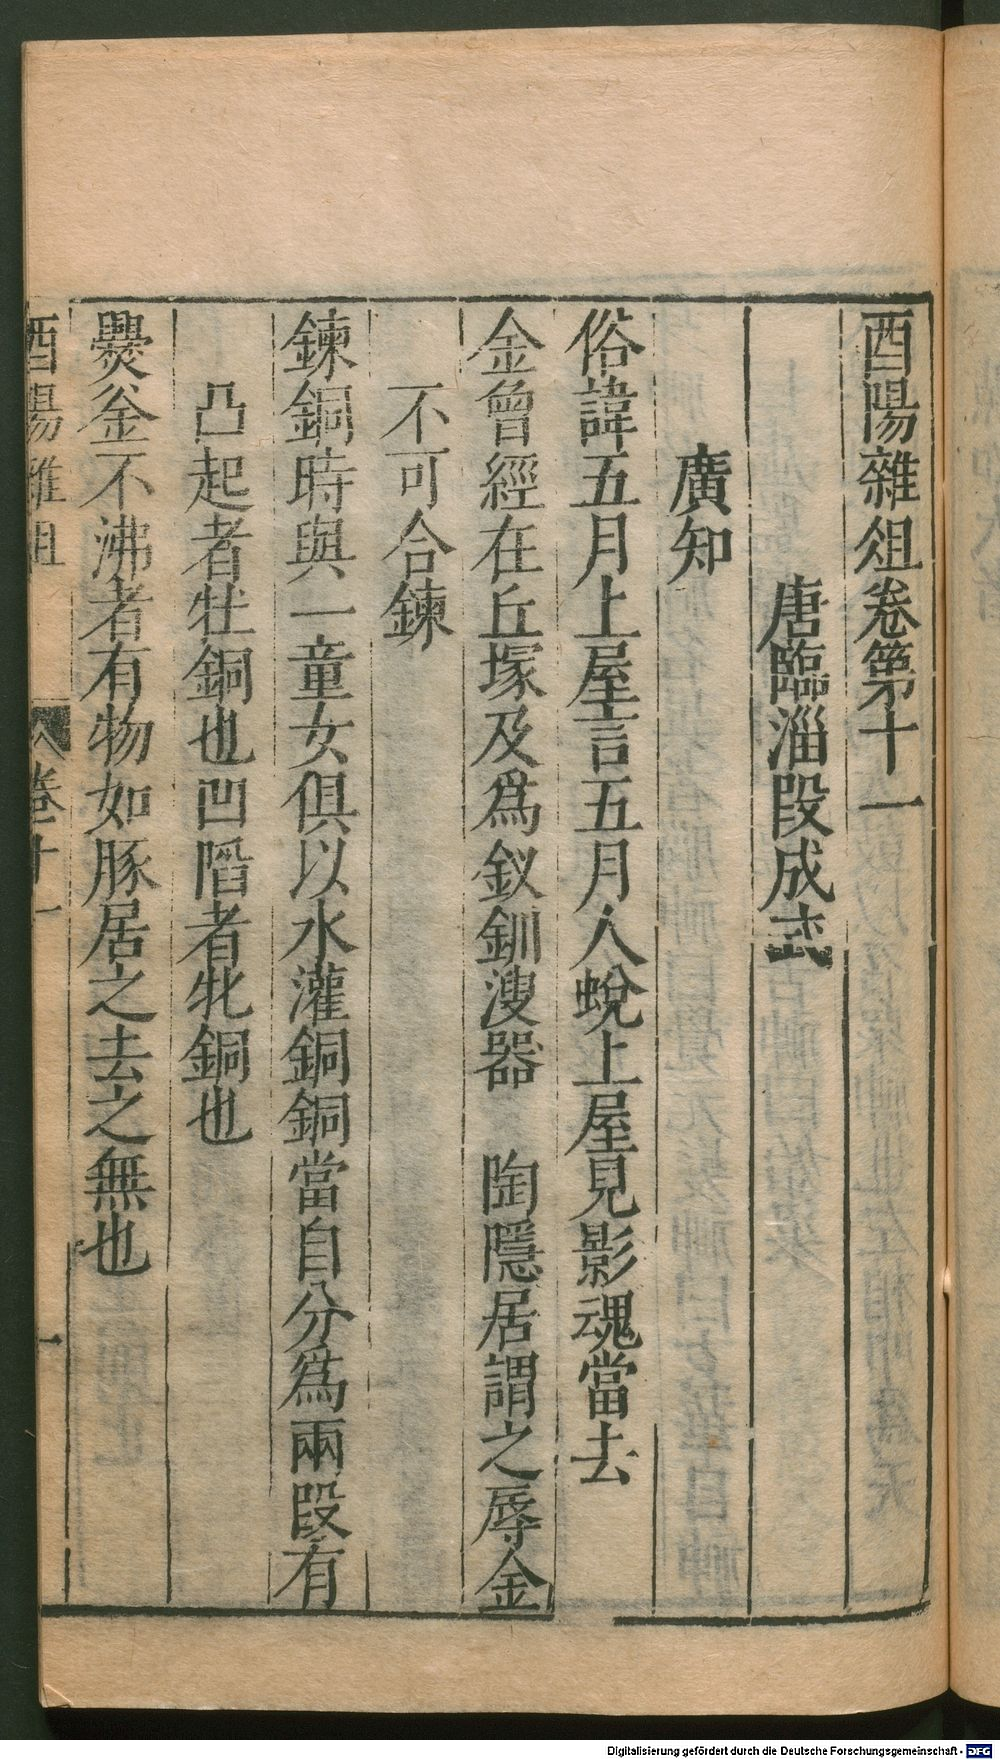 酉陽雜俎卷第十一
唐臨淄段成式
廣知
俗諱五月上屋言五月人蛻上屋見影魂當去
金曾經在丘塚及爲釵釧溲器　陶隱居謂之辱金
不可合鍊
鍊銅時與一童女俱以水灌銅銅當自分爲兩段有
凸起者牡銅也凹陷者牝銅也
爂釜不沸者有物如豚居之去之無也
酉陽雜俎　卷十一　一
Digitalisierung gefördert durch die Deutsche Forschungsgemeinschaft - DFG